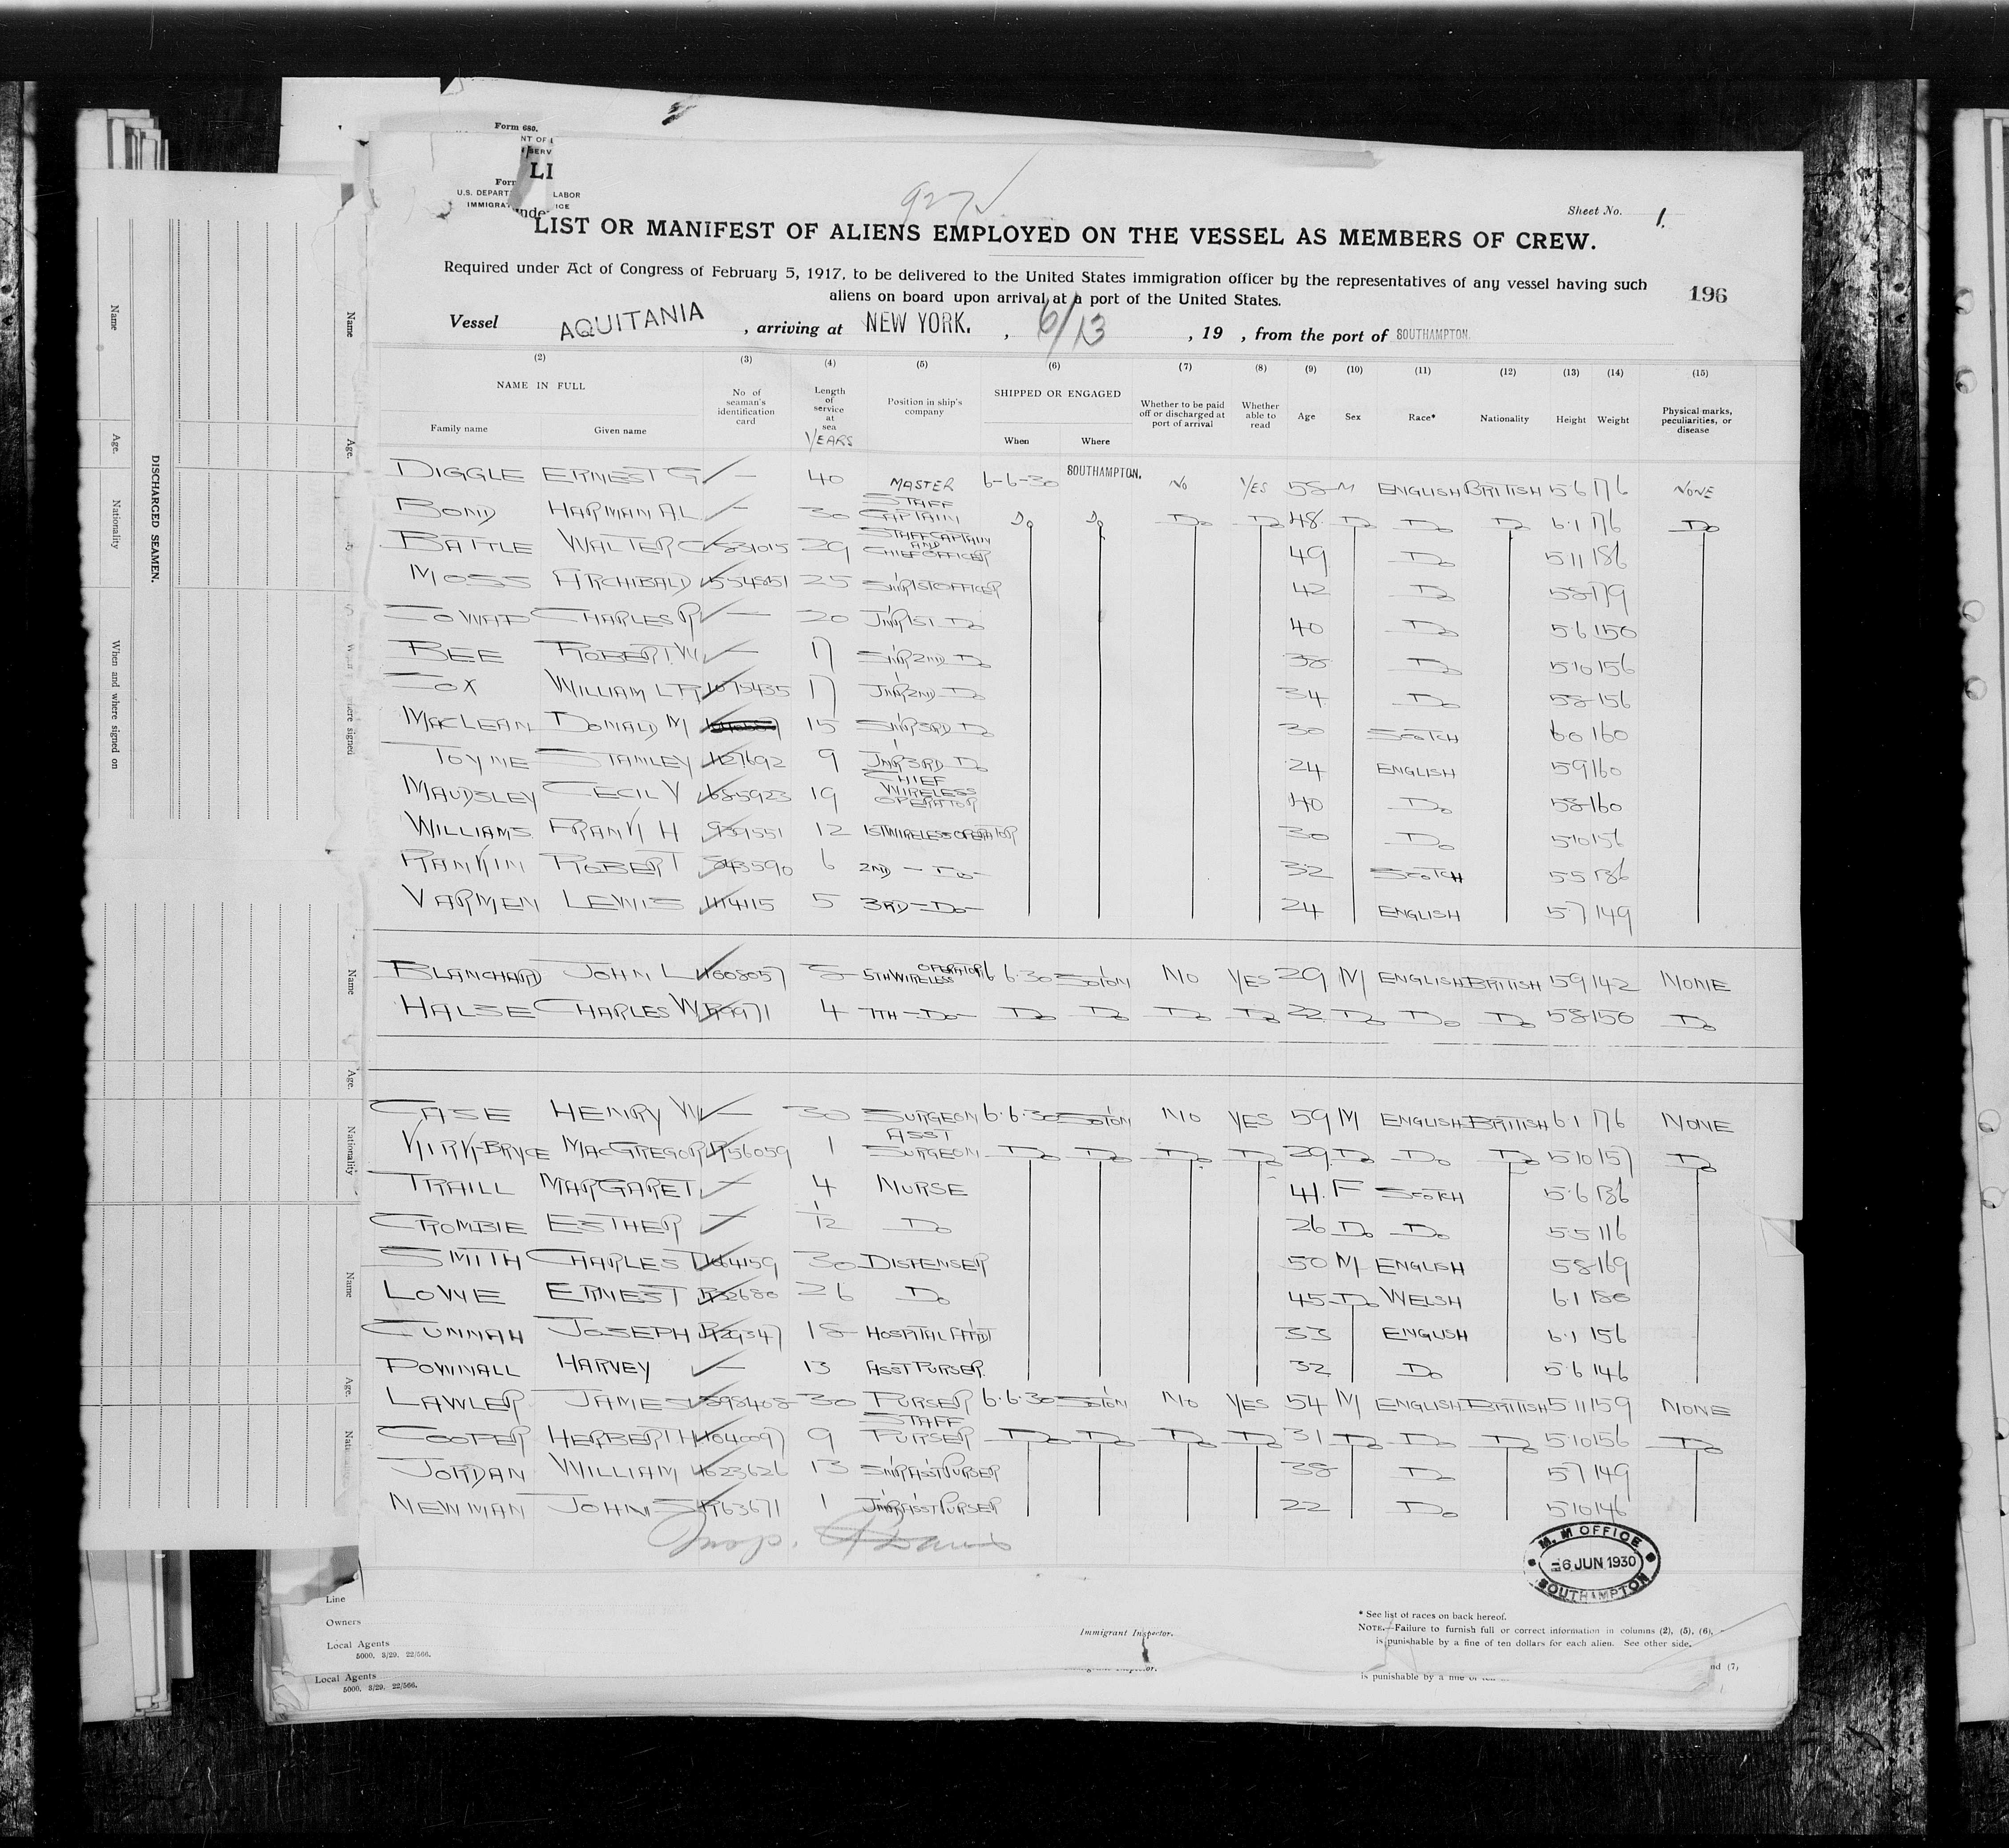 Form 680.
NT OF L
SERV
LI
Form
U.S. DEPART LABOR
IMMIGRA ICE
unde
927
Sheet No. 1.
LIST OR MANIFEST OF ALIENS EMPLOYED ON THE VESSEL AS MEMBERS OF CREW.
Required under Act of Congress of February 5, 1917, to be delivered to the United States immigration officer by the representatives of any vessel having such
aliens on board upon arrival at a port of the United States.
196
Vessel AQUITANIA , arriving at NEW YORK. , 6/13 , 19 , from the port of SOUTHAMPTON.
(2) (3) (4) (5) (6) (7) (8) (9) (10) (11) (12) (13) (14) (15)
NAME IN FULL
Family name Given name
No of seaman's identification card
Length of service at sea YEARS
Position in ship's company
SHIPPED OR ENGAGED
When Where
Whether to be paid off or discharged at port of arrival
Whether able to read
Age Sex Race* Nationality Height Weight
Physical marks, peculiarities, or disease
DIGGLE ERNEST G — 40 MASTER 6-6-30 SOUTHAMPTON. NO YES 58 M ENGLISH BRITISH 5·6 176 NONE
BOND HARMAN A.L — 30 STAFF CAPTAIN Do Do Do Do 48 Do Do Do 6·1 176 Do
BATTLE WALTER C 831015 29 STAFF CAPTAIN AND CHIEF OFFICER 49 Do 5·11 186
MOSS ARCHIBALD 554851 25 SNR 1ST OFFICER 42 Do 5·8 179
COWAP CHARLES R — 20 JNR 1ST Do 40 Do 5·6 150
BEE ROBERT.W — 17 SNR 2ND Do 38 Do 5·10 156
COX WILLIAM L R 1075435 17 JNR 2ND Do 34 Do 5·8 156
MACLEAN DONALD M 15 SNR 3RD Do 30 SCOTCH 6·0 160
TOYNE STANLEY 1127692 9 JNR 3RD Do 24 ENGLISH 5·9 160
MAUDSLEY CECIL V 685923 19 CHIEF WIRELESS OPERATOR 40 Do 5·8 160
WILLIAMS FRANK H 939551 12 1ST WIRELESS OPERATOR 30 Do 5·10 156
RANKIN ROBERT 843590 6 2ND — Do — 32 SCOTCH 5·5 136
VARMEN LEWIS 1114115 5 3RD — Do — 24 ENGLISH 5·7 149
BLANCHARD JOHN L 1008057 5 5TH WIRELESS OPERATOR 6·6·30 SOTON NO YES 29 M ENGLISH BRITISH 5·9 142 NONE
HALSE CHARLES W 4 7TH — Do — Do Do Do Do 22 Do Do Do 5·8 150 Do
CASE HENRY W — 30 SURGEON 6·6·30 SOTON NO YES 59 M ENGLISH BRITISH 6·1 176 NONE
KIRK-BRYCE MACGREGOR R56059 1 ASST SURGEON Do Do Do Do 29 Do Do Do 5·10 157 Do
TRAILL MARGARET — 4 NURSE 41. F SCOTCH 5·6 136
CROMBIE ESTHER — 1/12 Do 26 Do Do 5·5 116
SMITH CHARLES T 1064159 30 DISPENSER 50 M ENGLISH 5·8 169
LOWE ERNEST R32680 26 Do 45 Do WELSH 6·1 180
CUNNAH JOSEPH R29347 18 HOSPITAL ATTDT 33 ENGLISH 6·1 156
POWNALL HARVEY — 13 ASST PURSER. 32 Do 5·6 146
LAWLER JAMES 598408 30 PURSER 6·6·30 SOTON NO YES 54 M ENGLISH BRITISH 5·11 159 NONE
COOPER HERBERT H 1104097 9 STAFF PURSER Do Do Do Do 31 Do Do Do 5·10 156 Do
JORDAN WILLIAM 1023626 13 SNR ASST PURSER 38 Do 5·7 149
NEWMAN JOHN S 1163671 1 JNR ASST PURSER 22 Do 5·10 146
M. M OFFICE
6 JUN 1930
SOUTHAMPTON
Line
Owners
Local Agents
5000. 3/29. 22/566.
Immigrant Inspector.
* See list of races on back hereof.
NOTE.—Failure to furnish full or correct information in columns (2), (5), (6),
is punishable by a fine of ten dollars for each alien. See other side.
Local Agents
5000. 3/29. 22/566.
is punishable by a fine of ten
nd (7)
DISCHARGED SEAMEN.
Name
Age.
Nationality
When and where signed on
Name
Age.
here signed
Name
Age.
Nationality
Name
Age.
Nat